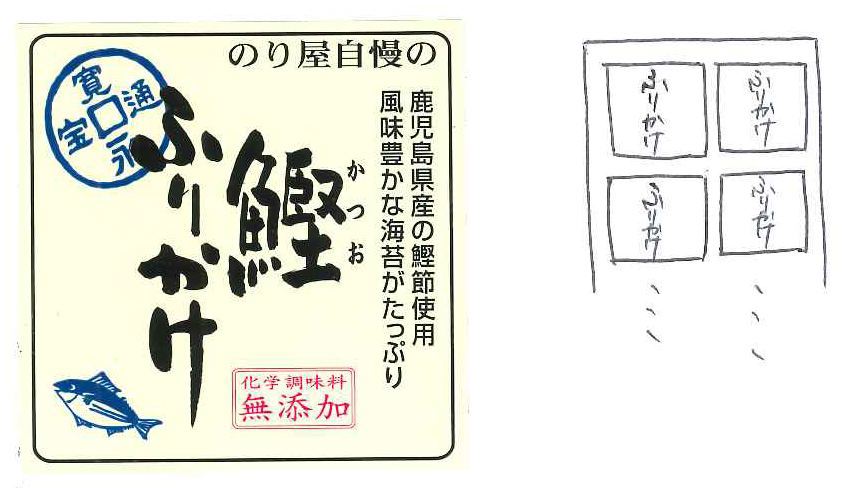 のり屋自慢の
鹿児島県産の鰹節使用
風味豊かな海苔がたっぷり
かつお
鰹
ふりかけ
寛永通宝
化学調味料
無添加
ふりかけ
ふりかけ
ふりかけ
ふりかけ